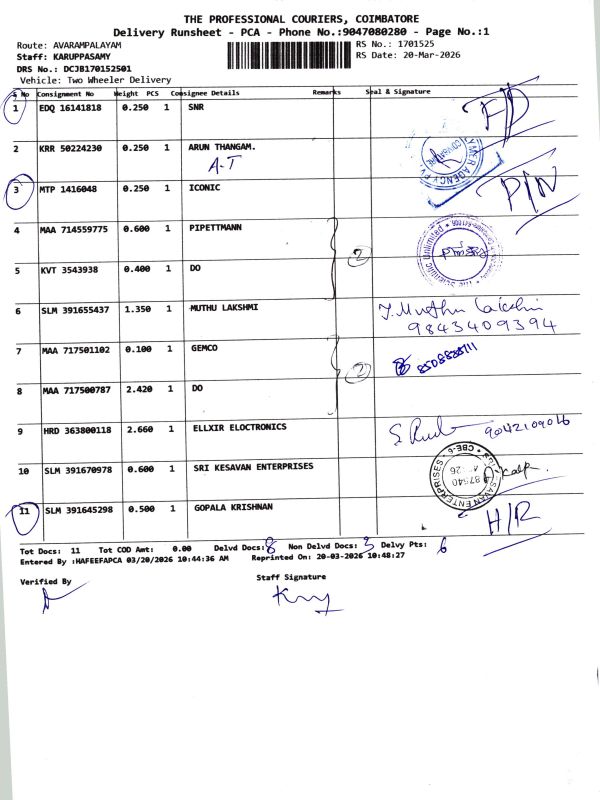 THE PROFESSIONAL COURIERS, COIMBATORE
Delivery Runsheet - PCA - Phone No.:9047080280 - Page No.:1
Route: AVARAMPALAYAM RS No.: 1701525
Staff: KARUPPASAMY RS Date: 20-Mar-2026
DRS No.: DCJB170152501
Vehicle: Two Wheeler Delivery
S No Consignment No Weight PCS Consignee Details Remarks Seal & Signature
1 EDQ 16141818 0.250 1 SNR
2 KRR 50224230 0.250 1 ARUN THANGAM.
A-T
3 MTP 1416048 0.250 1 ICONIC
P/N
4 MAA 714559775 0.600 1 PIPETTMANN
2
5 KVT 3543938 0.400 1 DO
6 SLM 391655437 1.350 1 MUTHU LAKSHMI
9843409394
7 MAA 717501102 0.100 1 GEMCO
2
8 MAA 717500787 2.420 1 DO
9 HRD 363800118 2.660 1 ELLXIR ELOCTRONICS
10 SLM 391670978 0.600 1 SRI KESAVAN ENTERPRISES
11 SLM 391645298 0.500 1 GOPALA KRISHNAN
H/R
Tot Docs: 11 Tot COD Amt: 0.00 Delvd Docs: 8 Non Delvd Docs: 3 Delvy Pts: 6
Entered By :HAFEEFAPCA 03/20/2026 10:44:36 AM Reprinted On: 20-03-2026 10:48:27
Verified By Staff Signature